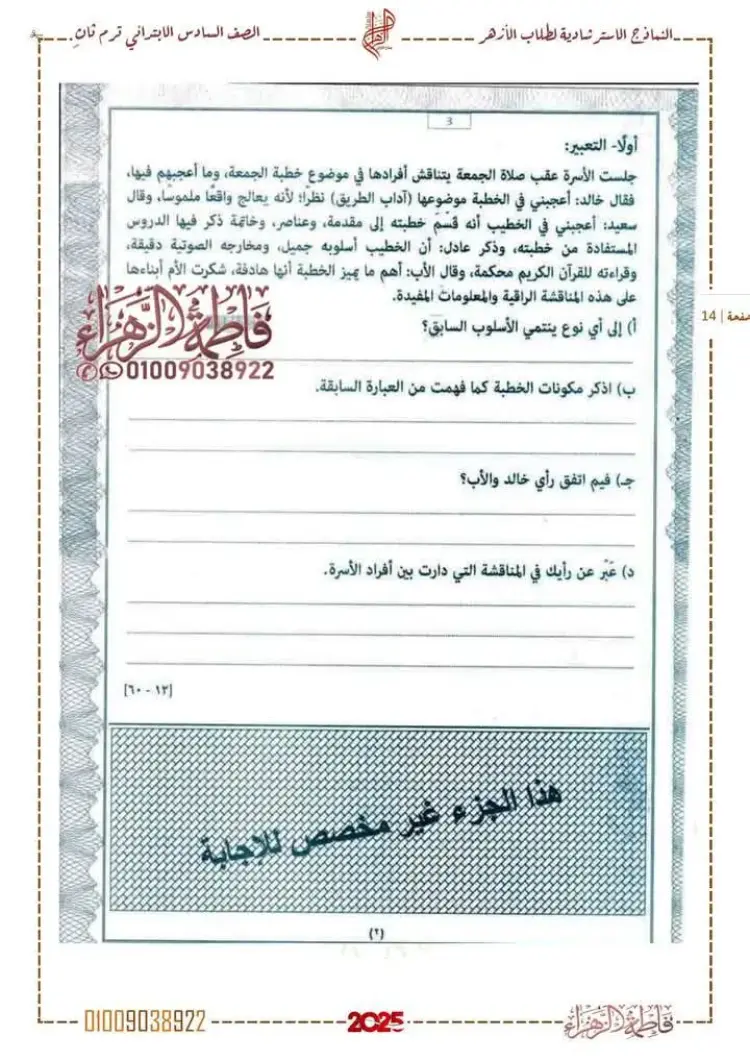 النماذج الاسترشادية لطلاب الأزهر
الأزهر
الصف السادس الابتدائي ترم ثانٍ
3
أولًا- التعبير:
جلست الأسرة عقب صلاة الجمعة يتناقش أفرادها في موضوع خطبة الجمعة، وما أعجبهم فيها،
فقال خالد: أعجبني في الخطبة موضوعها (آداب الطريق) نظرًا؛ لأنه يعالج واقعًا ملموسًا، وقال
سعيد: أعجبني في الخطيب أنه قسّمَ خطبته إلى مقدمة، وعناصر، وخاتمة ذكر فيها الدروس
المستفادة من خطبته، وذكر عادل: أن الخطيب أسلوبه جميل، ومخارجه الصوتية دقيقة،
وقراءته للقرآن الكريم محكمة، وقال الأب: أهم ما يميز الخطبة أنها هادفة، شكرت الأم أبناءها
على هذه المناقشة الراقية والمعلومات المفيدة.
صفحة | 14
فاطمة الزهراء
01009038922
أ) إلى أي نوع ينتمي الأسلوب السابق؟
ب) اذكر مكونات الخطبة كما فهمت من العبارة السابقة.
جـ) فيم اتفق رأي خالد والأب؟
د) عَبّر عن رأيك في المناقشة التي دارت بين أفراد الأسرة.
[١٣ - ٦٠]
هذا الجزء غير مخصص للاجابة
(٢)
فاطمة الزهراء
2025
01009038922